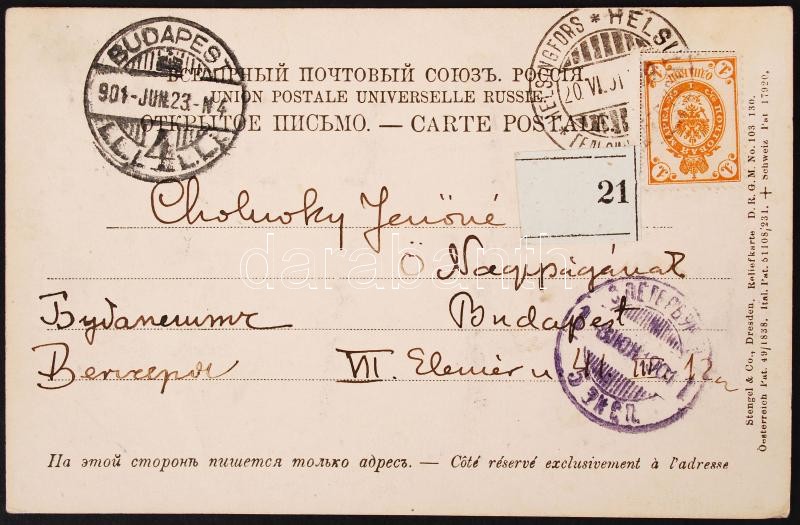 BUDAPEST
901-JUN.23-N4
4
HELSINGFORS * HELSI
20.VI.01
ВСЕМІРНЫЙ ПОЧТОВЫЙ СОЮЗЪ. РОССІЯ.
UNION POSTALE UNIVERSELLE RUSSIE
ОТКРЫТОЕ ПИСЬМО. — CARTE POSTALE
21
Cholnoky Jenőné
Ő Nagyságának
Будапештъ
Budapest
Венгерія
VII. Elemér u 41 III 12a
С. ПЕТЕРБУР
На этой сторонѣ пишется только адресъ. — Côté réservé exclusivement à l'adresse
Stengel & Co., Dresden, Reliefkarte D. R. G. M. No. 103 130.
Oesterreich Pat. 49/1838. Ital. Pat. 51108/231. + Schweiz Pat 17920.
darabanth